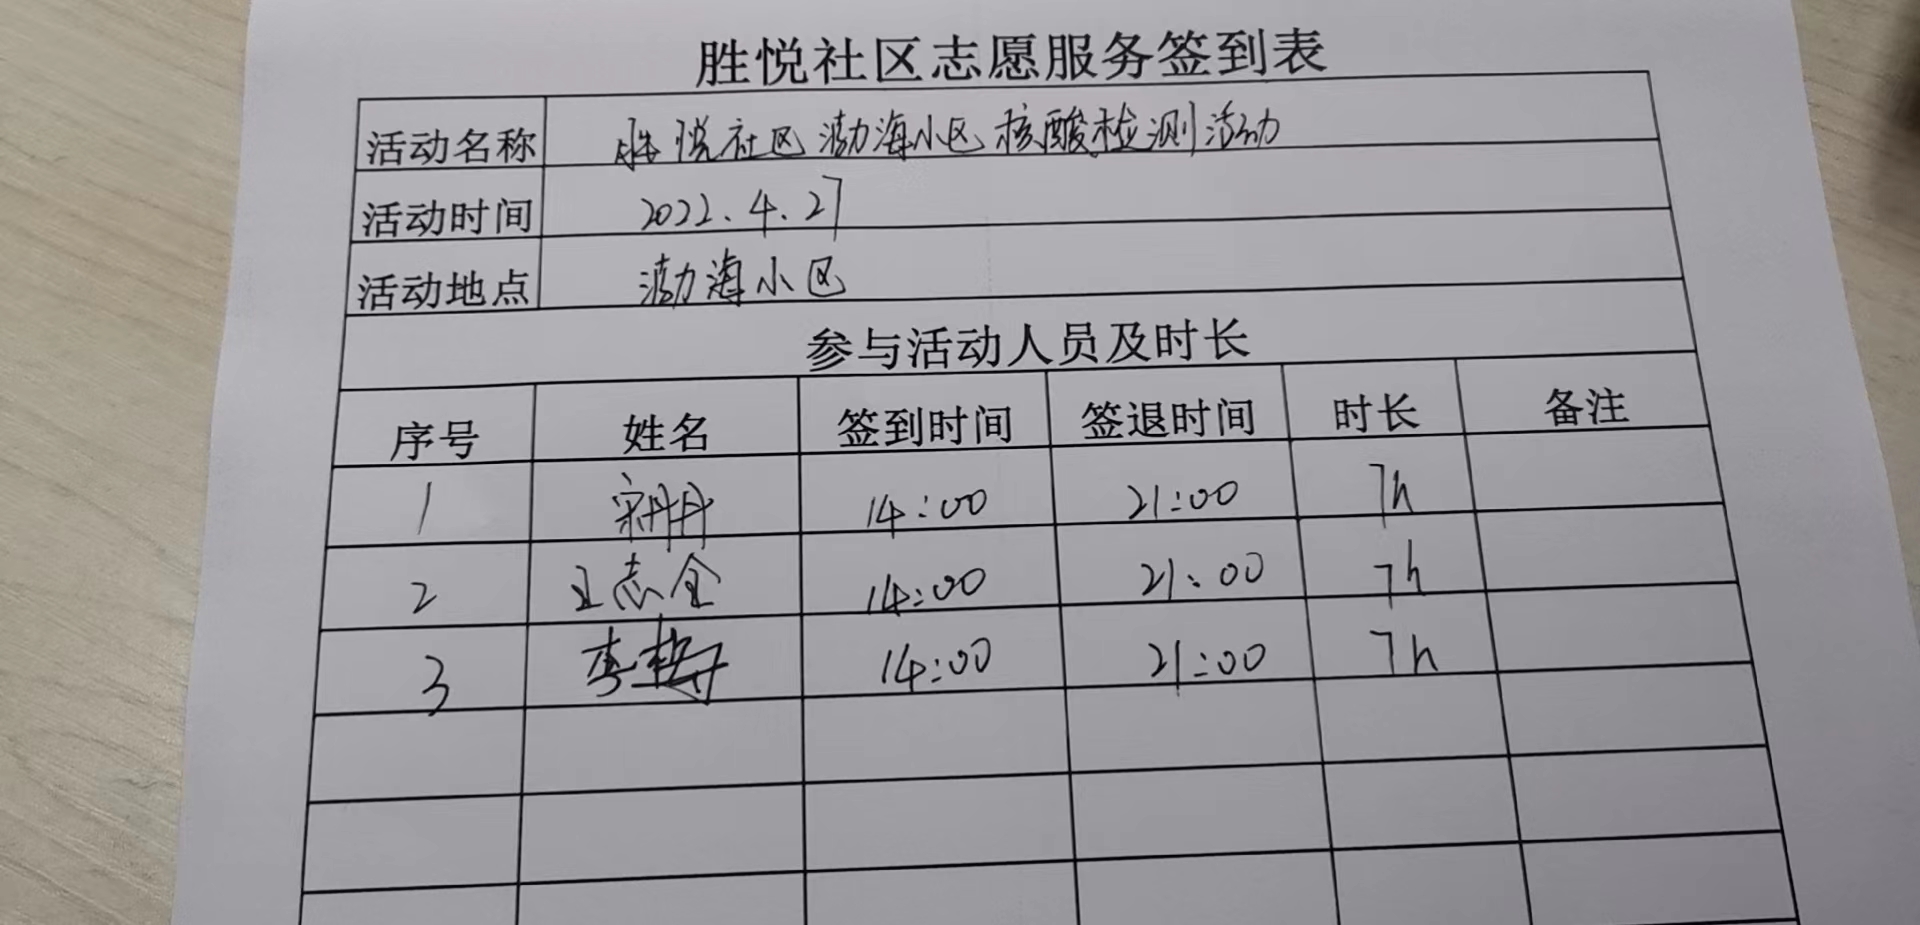 胜悦社区志愿服务签到表
活动名称 胜悦社区渤海小区核酸检测活动
活动时间 2022.4.27
活动地点 渤海小区
参与活动人员及时长
序号 姓名 签到时间 签退时间 时长 备注
1 宋丹丹 14:00 21:00 7h
2 王志全 14:00 21:00 7h
3 李 14:00 21:00 7h